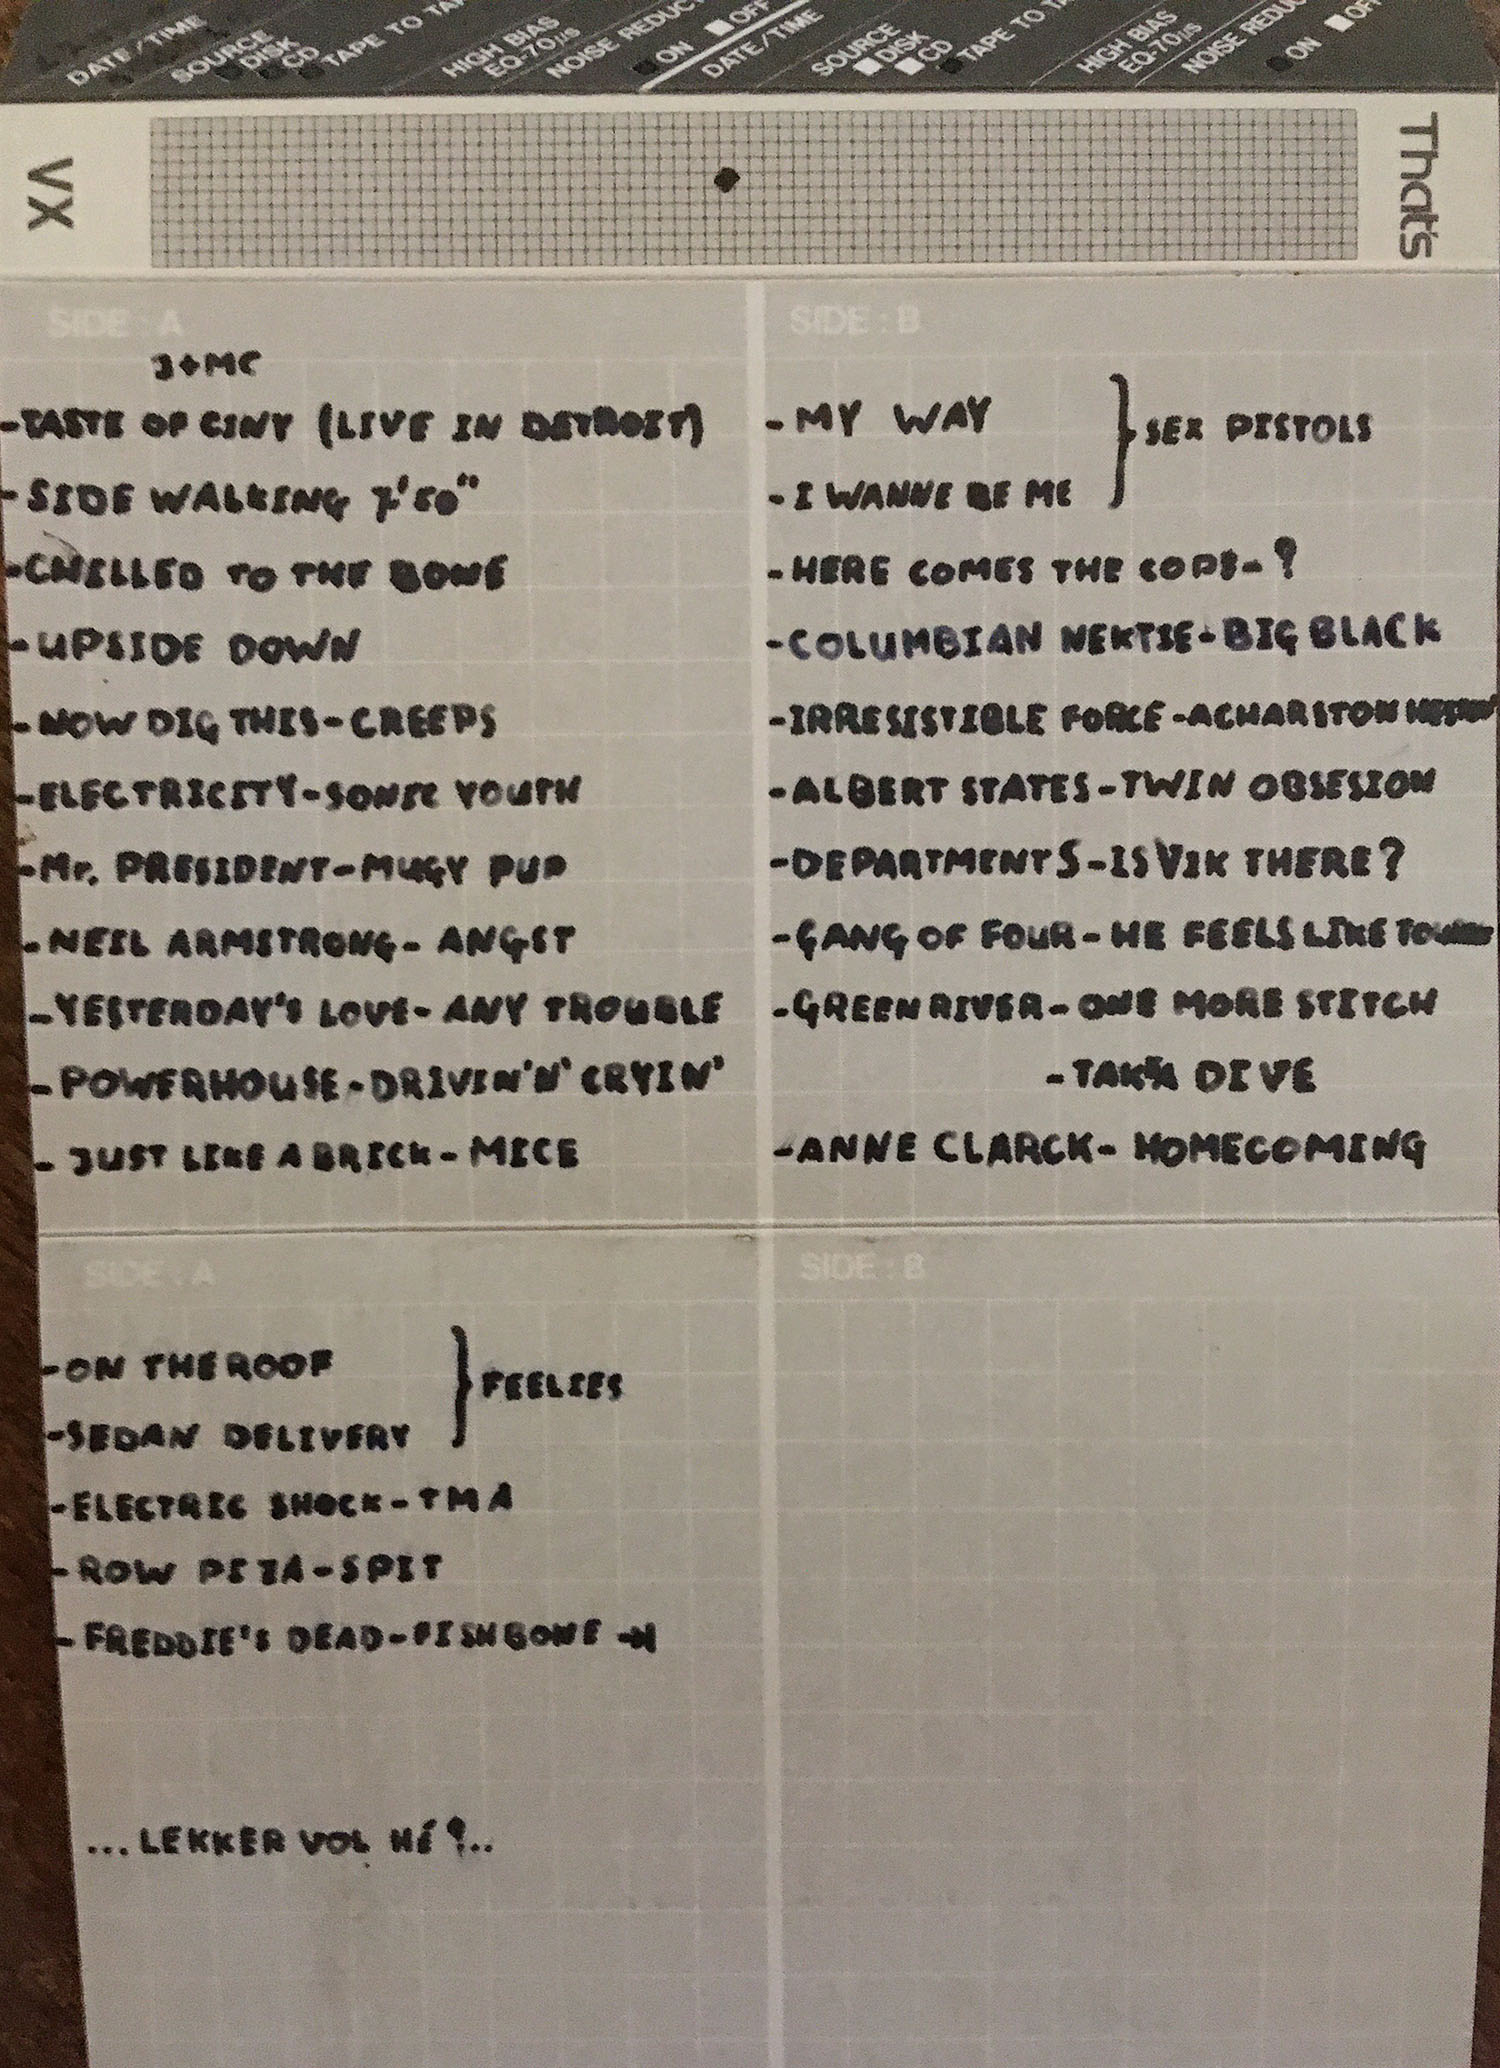 DATE/TIME
SOURCE
DISK
CD
TAPE TO TAP
HIGH BIAS
EQ-70µs
NOISE REDUCT
ON
OFF
DATE/TIME
SOURCE
DISK
CD
TAPE TO TA
HIGH BIAS
EQ-70µs
NOISE REDU
ON
OFF
VX
That's
SIDE : A
J+MC
-TASTE OF CINY (LIVE IN DETROIT)
-SIDE WALKING 7'50"
-CHILLED TO THE BONE
-UPSIDE DOWN
-NOW DIG THIS-CREEPS
-ELECTRICITY-SONIC YOUTH
-Mr. PRESIDENT-MUGY PUP
-NEIL ARMSTRONG-ANGST
-YESTERDAY'S LOVE-ANY TROUBLE
-POWERHOUSE-DRIVIN'N'CRYIN'
-JUST LIKE A BRICK-MICE
SIDE : B
-MY WAY
-I WANNE BE ME
SEX PISTOLS
-HERE COMES THE COPS-?
-COLUMBIAN NEKTIE-BIG BLACK
-IRRESISTIBLE FORCE-ACHARSTON
-ALBERT STATES-TWIN OBSESION
-DEPARTMENTS-IS VIK THERE?
-GANG OF FOUR-HE FEELS LIKE
-GREEN RIVER-ONE MORE STITCH
-TAK'A DIVE
-ANNE CLARCK-HOMECOMING
SIDE : A
-ON THE ROOF
-SEDAN DELIVERY
FEELIES
-ELECTRIC SHOCK-TMA
-ROW PIZA-SPIT
-FREDDIE'S DEAD-FISHBONE →
...LEKKER VOL HÉ?..
SIDE : B